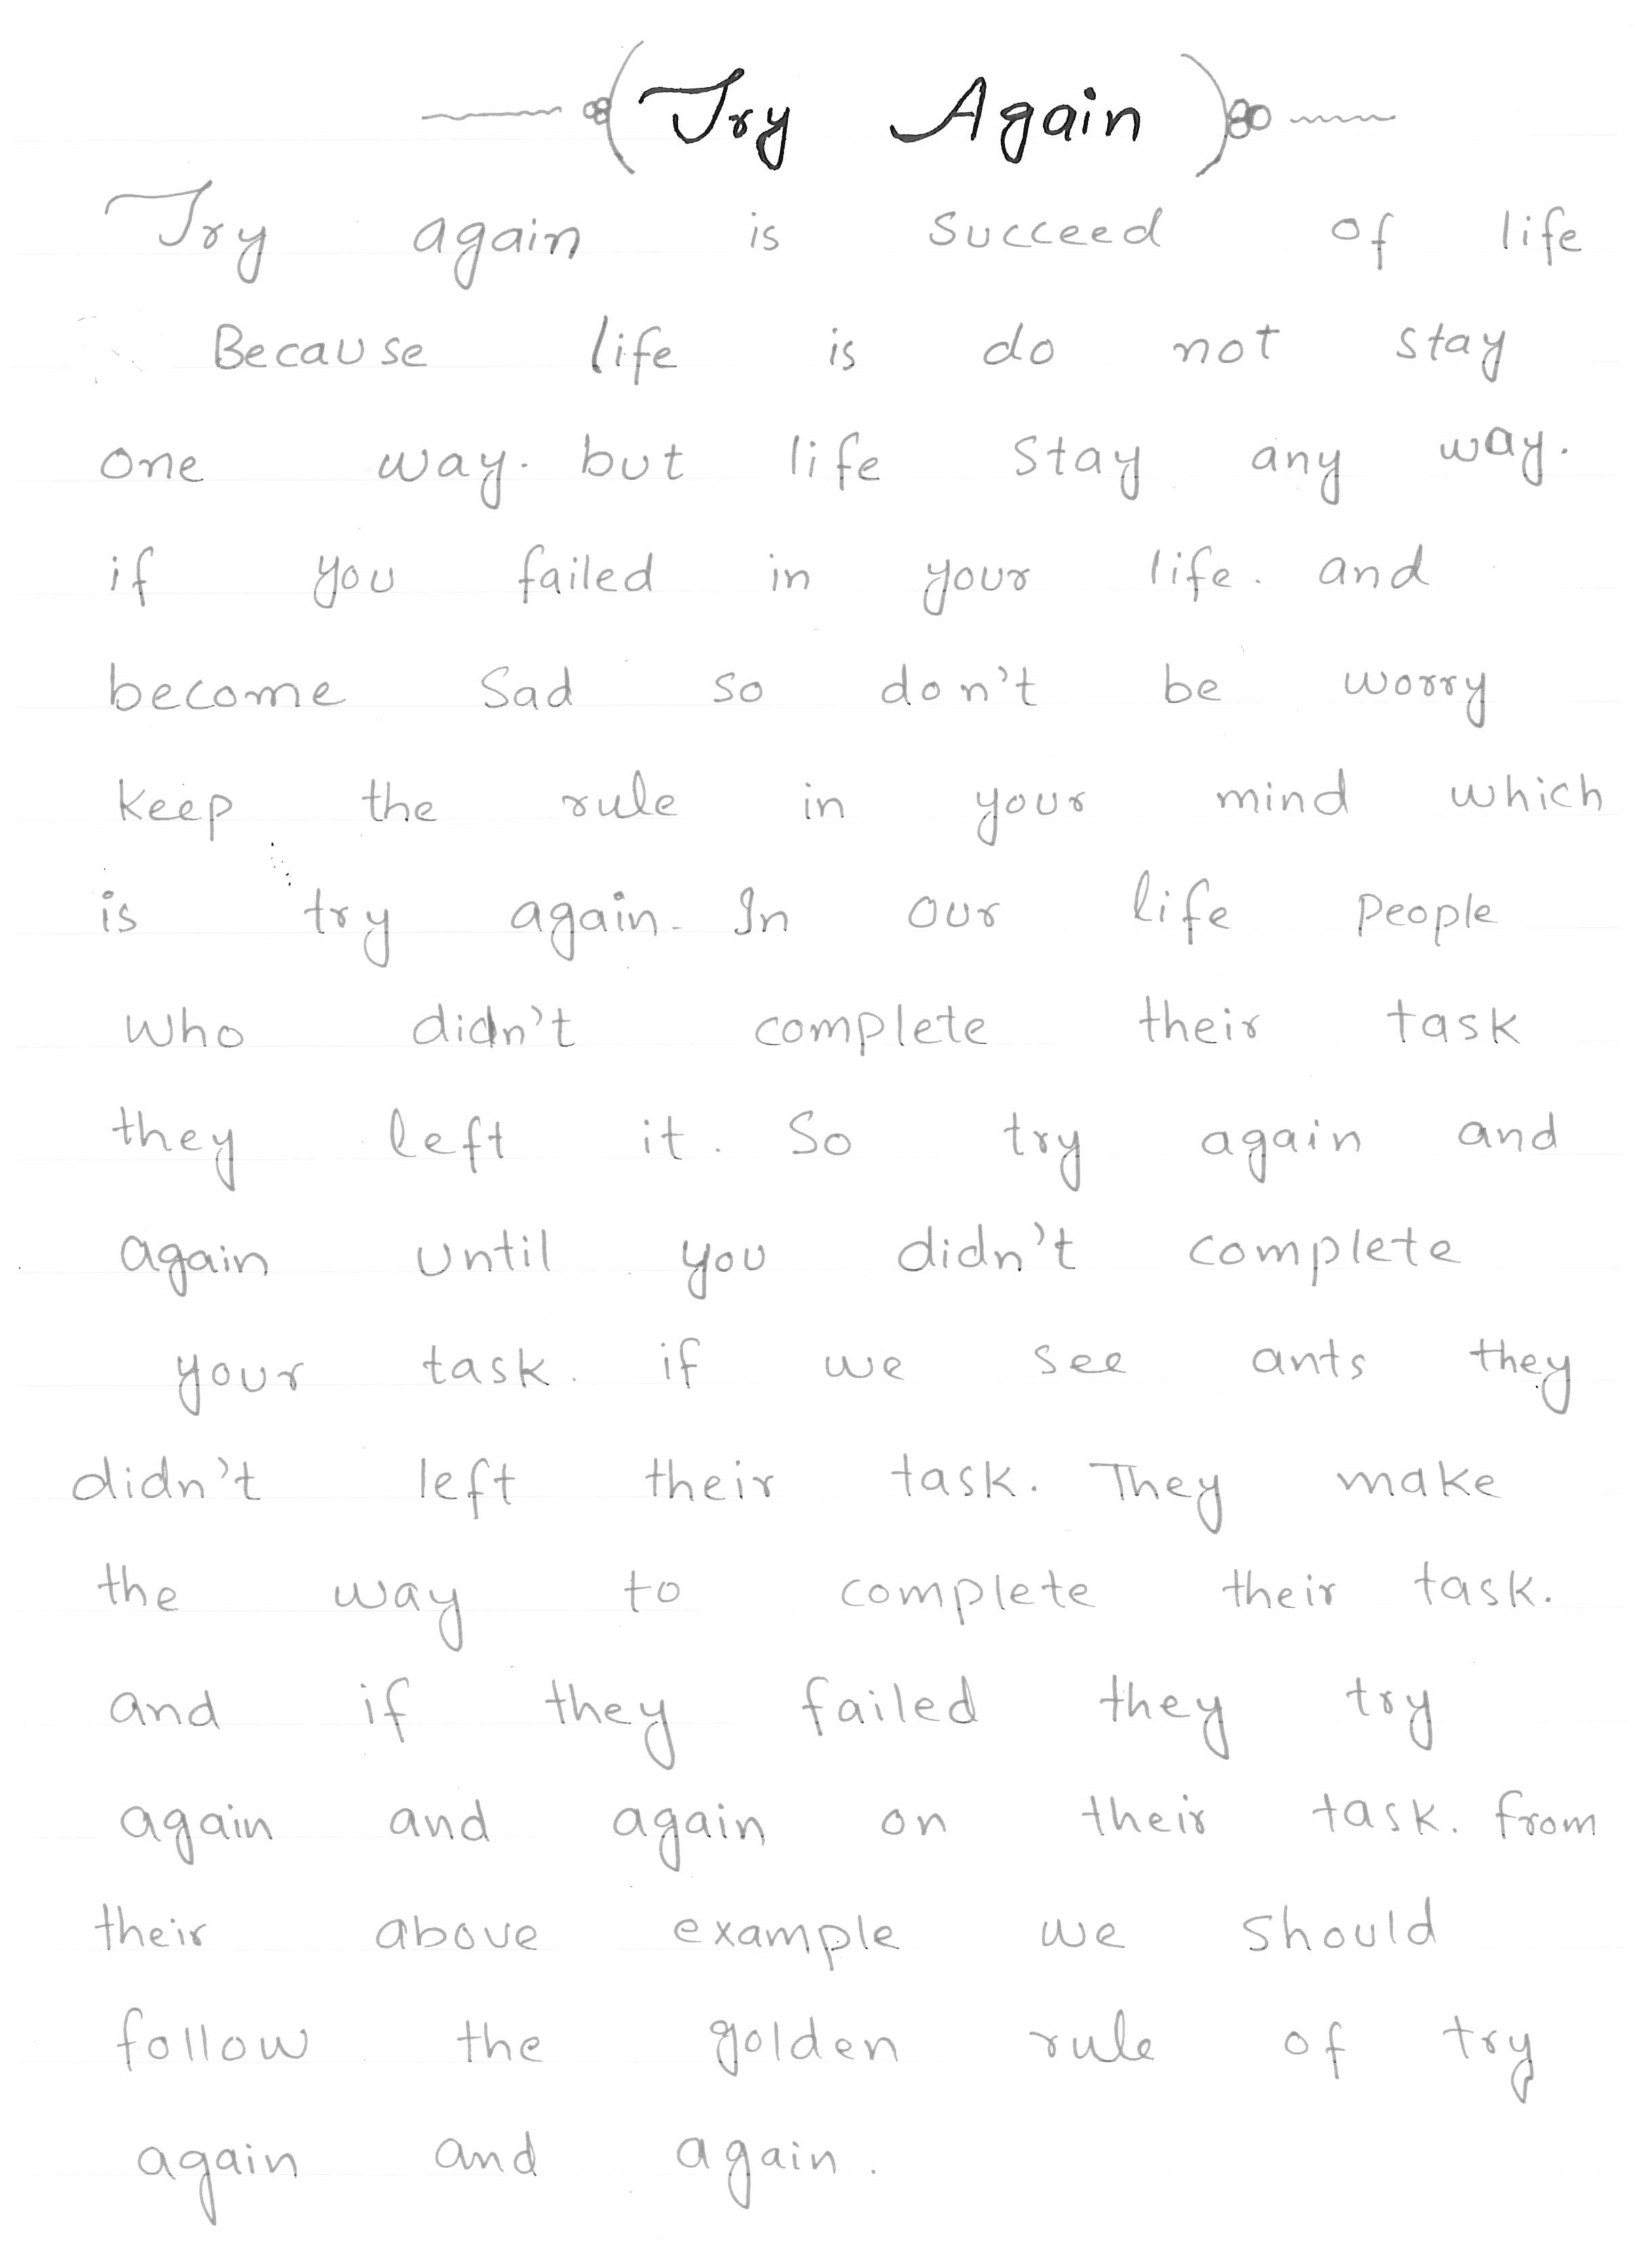 Try Again
Try again is succeed of life
Because life is do not stay
one way. but life stay any way.
if you failed in your life. and
become sad so don't be worry
keep the rule in your mind which
is try again. In our life people
who didn't complete their task
they left it. So try again and
again until you didn't complete
your task. if we see ants they
didn't left their task. They make
the way to complete their task.
and if they failed they try
again and again on their task. from
their above example we should
follow the golden rule of try
again and again.